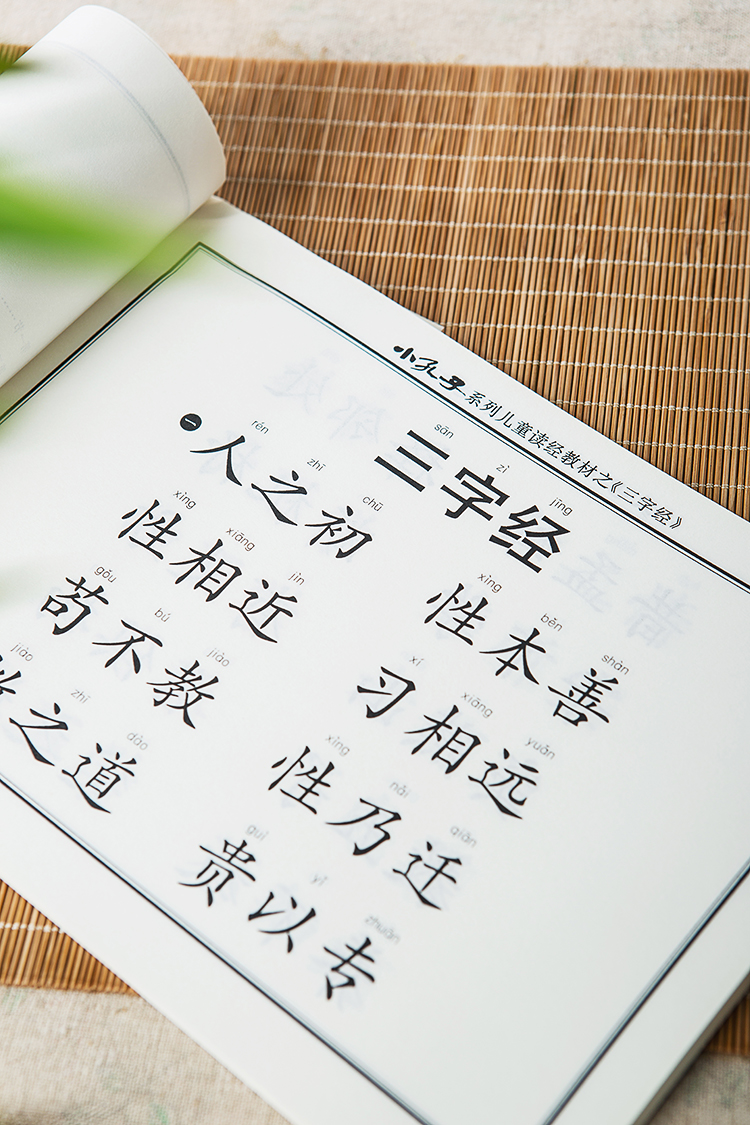 小孔子系列儿童读经教材之《三字经》
sān zì jīng
三字经
rén zhī chū xìng běn shàn
㊀人之初 性本善
xìng xiāng jìn xí xiāng yuǎn
性相近 习相远
gǒu bú jiào xìng nǎi qiān
苟不教 性乃迁
jiào zhī dào guì yǐ zhuān
教之道 贵以专